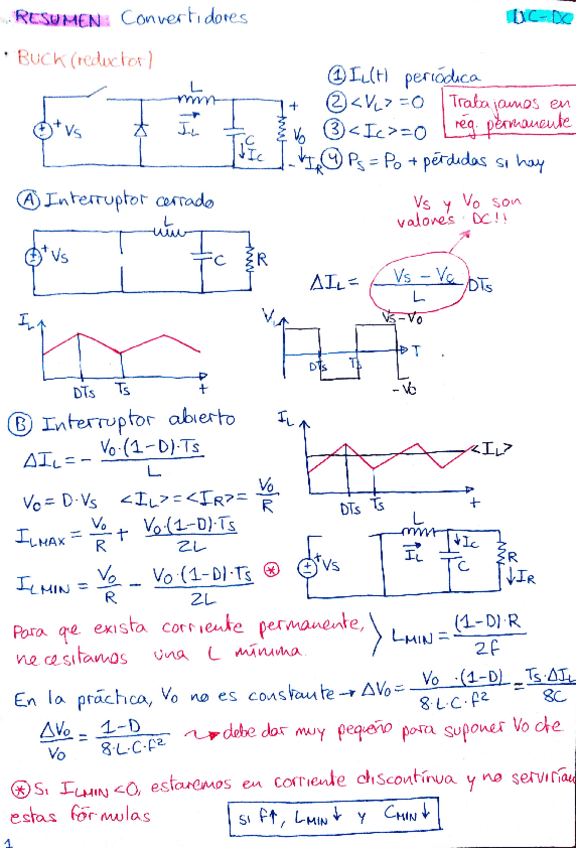 RESUMEN: Convertidores DC-DC
· BUCK (reductor)
① IL(t) periódica
② <VL> = 0
③ <Ic> = 0
④ Ps = Po + pérdidas si hay
Trabajamos en
rég. permanente
Vs L IL C Ic Vo IR
Ⓐ Interruptor cerrado
Vs y Vo son
valores DC!!
Vs L C R
ΔIL = (Vs - Vc)/L DTs
IL DTs Ts t
VL Vs-Vo DTs Ts T -Vo
Ⓑ Interruptor abierto
ΔIL = - Vo·(1-D)·Ts/L
IL <IL> DTs Ts t
Vo = D·Vs <IL> = <IR> = Vo/R
ILMAX = Vo/R + Vo·(1-D)·Ts/2L
ILMIN = Vo/R - Vo·(1-D)·Ts/2L ⊛
Vs L IL Ic C R IR
Para qe exista corriente permanente,
necesitamos una L mínima.
LMIN = (1-D)·R/2f
En la práctica, Vo no es constante → ΔVo = Vo·(1-D)/8·L·C·f² = Ts·ΔIL/8C
ΔVo/Vo = 1-D/8·L·C·f² → debe dar muy pequeño para suponer Vo cte
⊛ Si ILMIN < 0, estaremos en corriente discontínua y no servirían
estas fórmulas
si f↑, LMIN↓ y CMIN↓
1